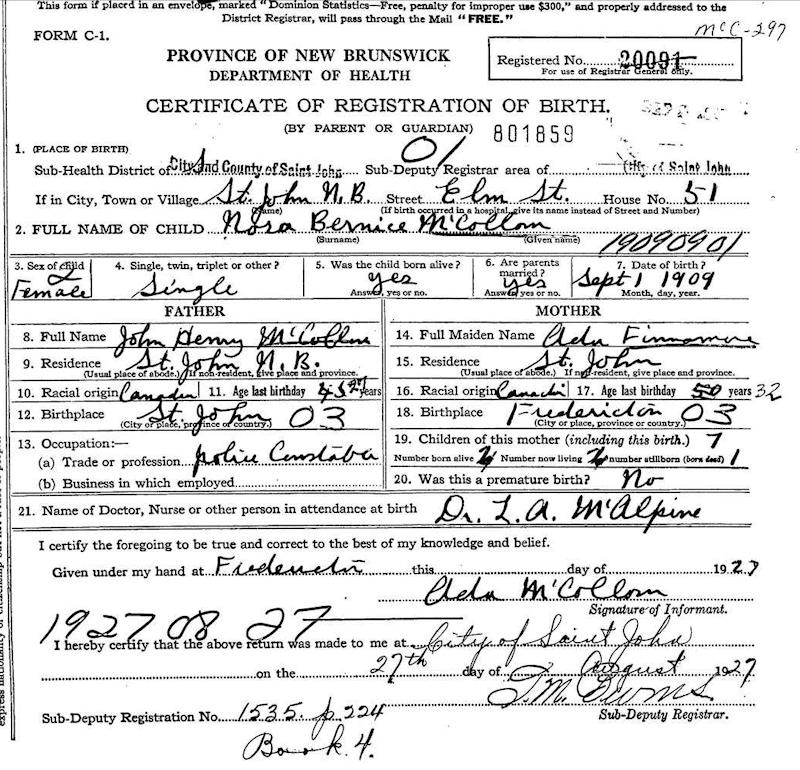 This form if placed in an envelope, marked "Dominion Statistics—Free, penalty for improper use $300," and properly addressed to the
District Registrar, will pass through the Mail "FREE."
McC-297
FORM C-1.
PROVINCE OF NEW BRUNSWICK
DEPARTMENT OF HEALTH
Registered No. 20091
For use of Registrar General only.
CERTIFICATE OF REGISTRATION OF BIRTH.
(BY PARENT OR GUARDIAN) 801859
1. (PLACE OF BIRTH) 01
Sub-Health District of City and County of Saint John Sub-Deputy Registrar area of City of Saint John
If in City, Town or Village St. John N.B. Street Elm St. House No. 51
(Name) (If birth occurred in a hospital, give its name instead of Street and Number)
2. FULL NAME OF CHILD Nora Bernice McCollom
(Surname) (Given name) 19090901
3. Sex of child 2 4. Single, twin, triplet or other? 5. Was the child born alive? 6. Are parents married? 7. Date of birth?
Female Single yes yes Sept 1 1909
Answer, yes or no. Answer yes or no. Month, day, year.
FATHER MOTHER
8. Full Name John Henry McCollom 14. Full Maiden Name Ada Finnamore
9. Residence St. John N.B. 15. Residence St. John
(Usual place of abode.) If non-resident, give place and province. (Usual place of abode.) If non-resident, give place and province.
10. Racial origin Canadian 11. Age last birthday years 16. Racial origin Canadian 17. Age last birthday 50 years 32
12. Birthplace St. John 03 18. Birthplace Fredericton 03
(City or place, province or country.) (City or place, province or country.)
13. Occupation:— 19. Children of this mother (including this birth.) 7
(a) Trade or profession police Constable Number born alive 6 Number now living 6 number stillborn (born dead) 1
(b) Business in which employed 20. Was this a premature birth? No
21. Name of Doctor, Nurse or other person in attendance at birth Dr. L. A. McAlpine
I certify the foregoing to be true and correct to the best of my knowledge and belief.
Given under my hand at Fredericton this day of 1927
Ada McCollom
Signature of Informant.
1927 08 27
I hereby certify that the above return was made to me at City of Saint John
on the 27th day of August 1927
Sub-Deputy Registrar.
Sub-Deputy Registration No. 1535. p. 224
Book 4.